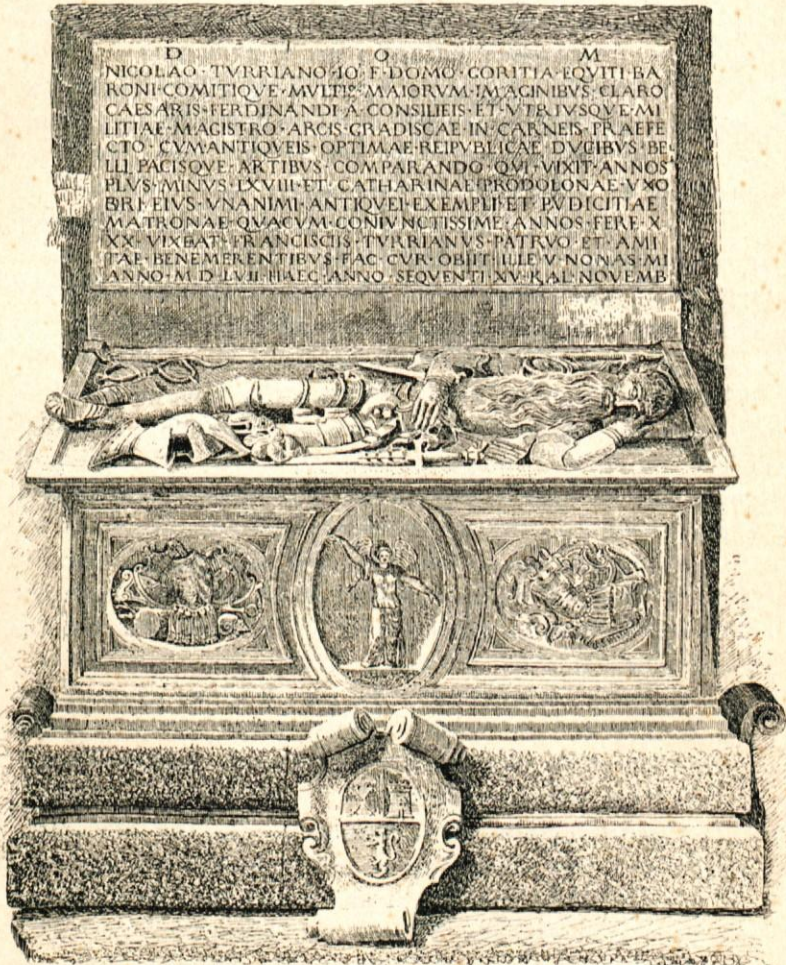 D O M
NICOLAO · TVRRIANO · IO · F · DOMO · GORITIA · EQVITI · BA
RONI · COMITIQVE · MVLTIS · MAIORVM · IMAGINIBVS · CLARO
CAESARIS · FERDINANDI · A · CONSILIEIS · ET · VTRIVSQVE · MI
LITIAE · MAGISTRO · ARCIS · GRADISCAE · IN · CARNEIS · PRAEFE
CTO · CVM · ANTIQVEIS · OPTIMAE · REIPVBLICAE · DVCIBVS · BE
LLI · PACISQVE · ARTIBVS · COMPARANDO · QVI · VIXIT · ANNOS
PLVS · MINVS · LXVIII · ET · CATHARINAE · PRODOLONAE · VXO
EIVS · VNANIMI · ANTIQVEI · EXEMPLI · ET · PVDICITIAE
MATRONAE · QVACVM · CONIVNCTISSIME · ANNOS · FERE · X
XX · VIXEAT · FRANCISCVS · TVRRIANVS · PATRVO · ET · AMI
TAE · BENEMERENTIBVS · FAC · CVR · OBIIT · ILLE · V · NONAS · MI
ANNO · M · D · LVII · HAEC · ANNO · SEQVENTI · XV · KAL · NOVEMB